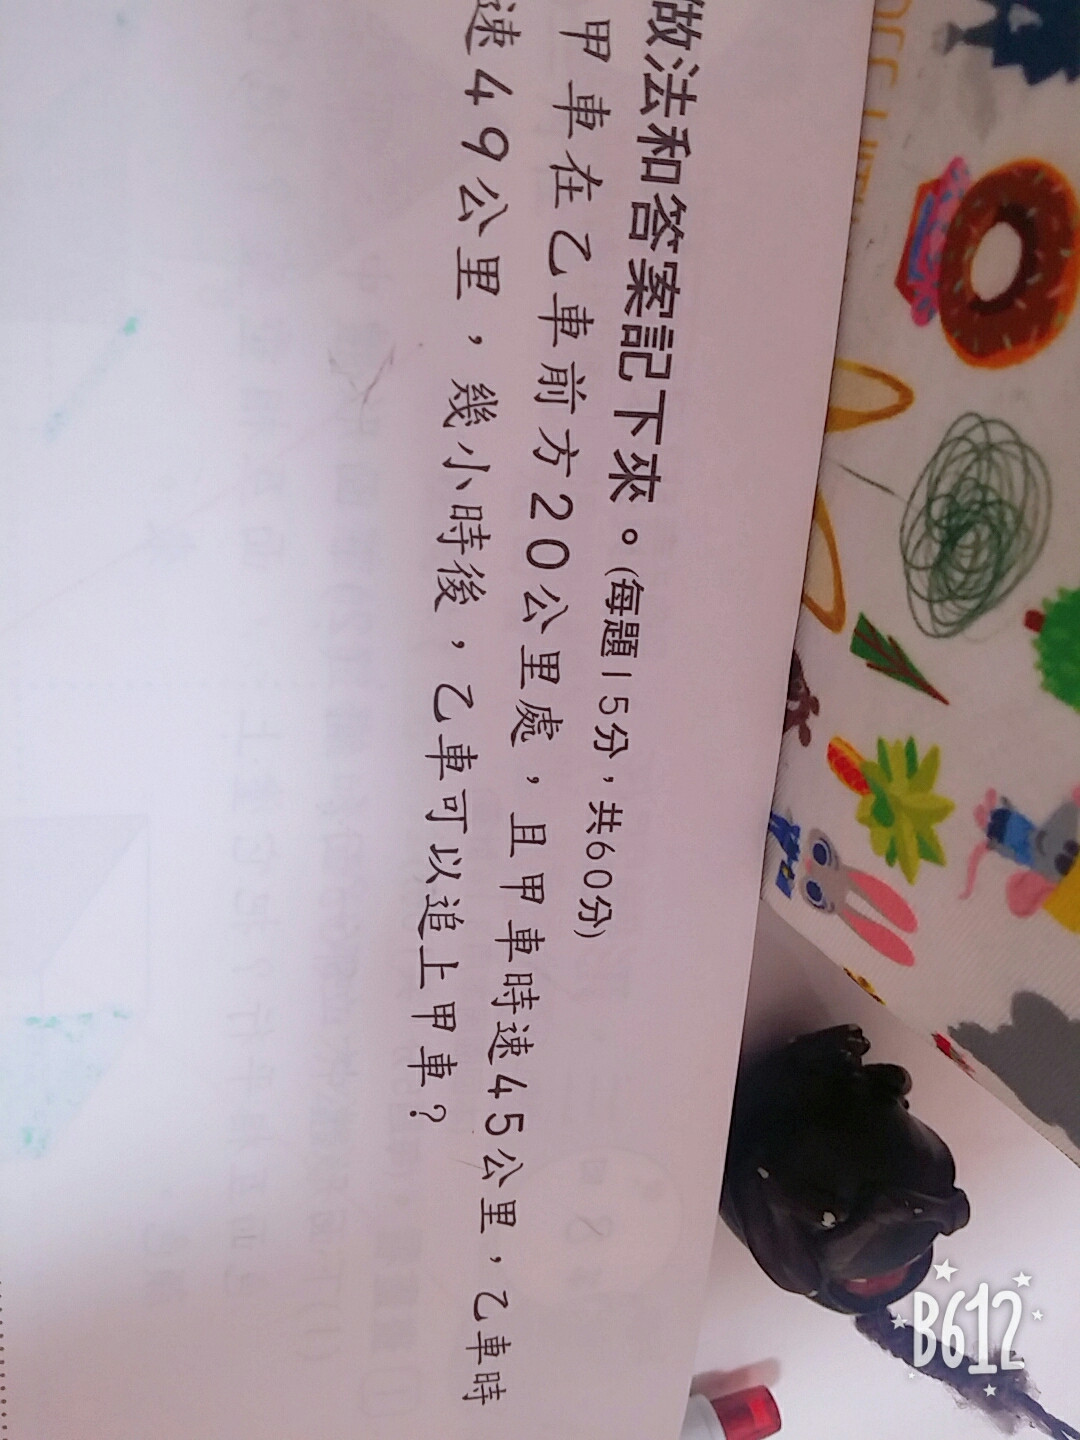 做法和答案記下來。(每題15分，共60分)
甲車在乙車前方20公里處，且甲車時速45公里，乙車時
速49公里，幾小時後，乙車可以追上甲車？
B612